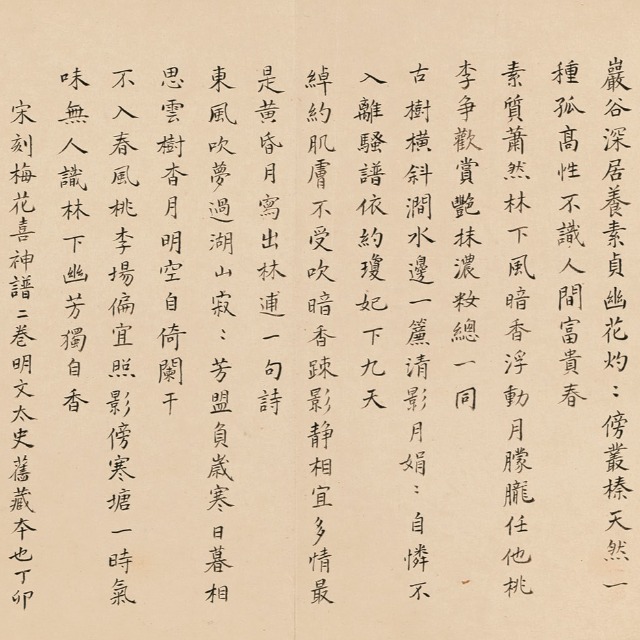 巖谷深居養素貞幽花灼〻傍叢榛天然一
種孤高性不識人間富貴春
素質蕭然林下風暗香浮動月朦朧任他桃
李爭歡賞艷抹濃妝總一同
古樹橫斜澗水邊一簾清影月娟〻自憐不
入離騷譜依約瓊妃下九天
綽約肌膚不受吹暗香踈影靜相宜多情最
是黃昏月寫出林逋一句詩
東風吹夢過湖山寂〻芳盟負歲寒日暮相
思雲樹杳月明空自倚闌干
不入春風桃李場偏宜照影傍寒塘一時氣
味無人識林下幽芳獨自香
宋刻梅花喜神譜二卷明文太史舊藏本也丁卯